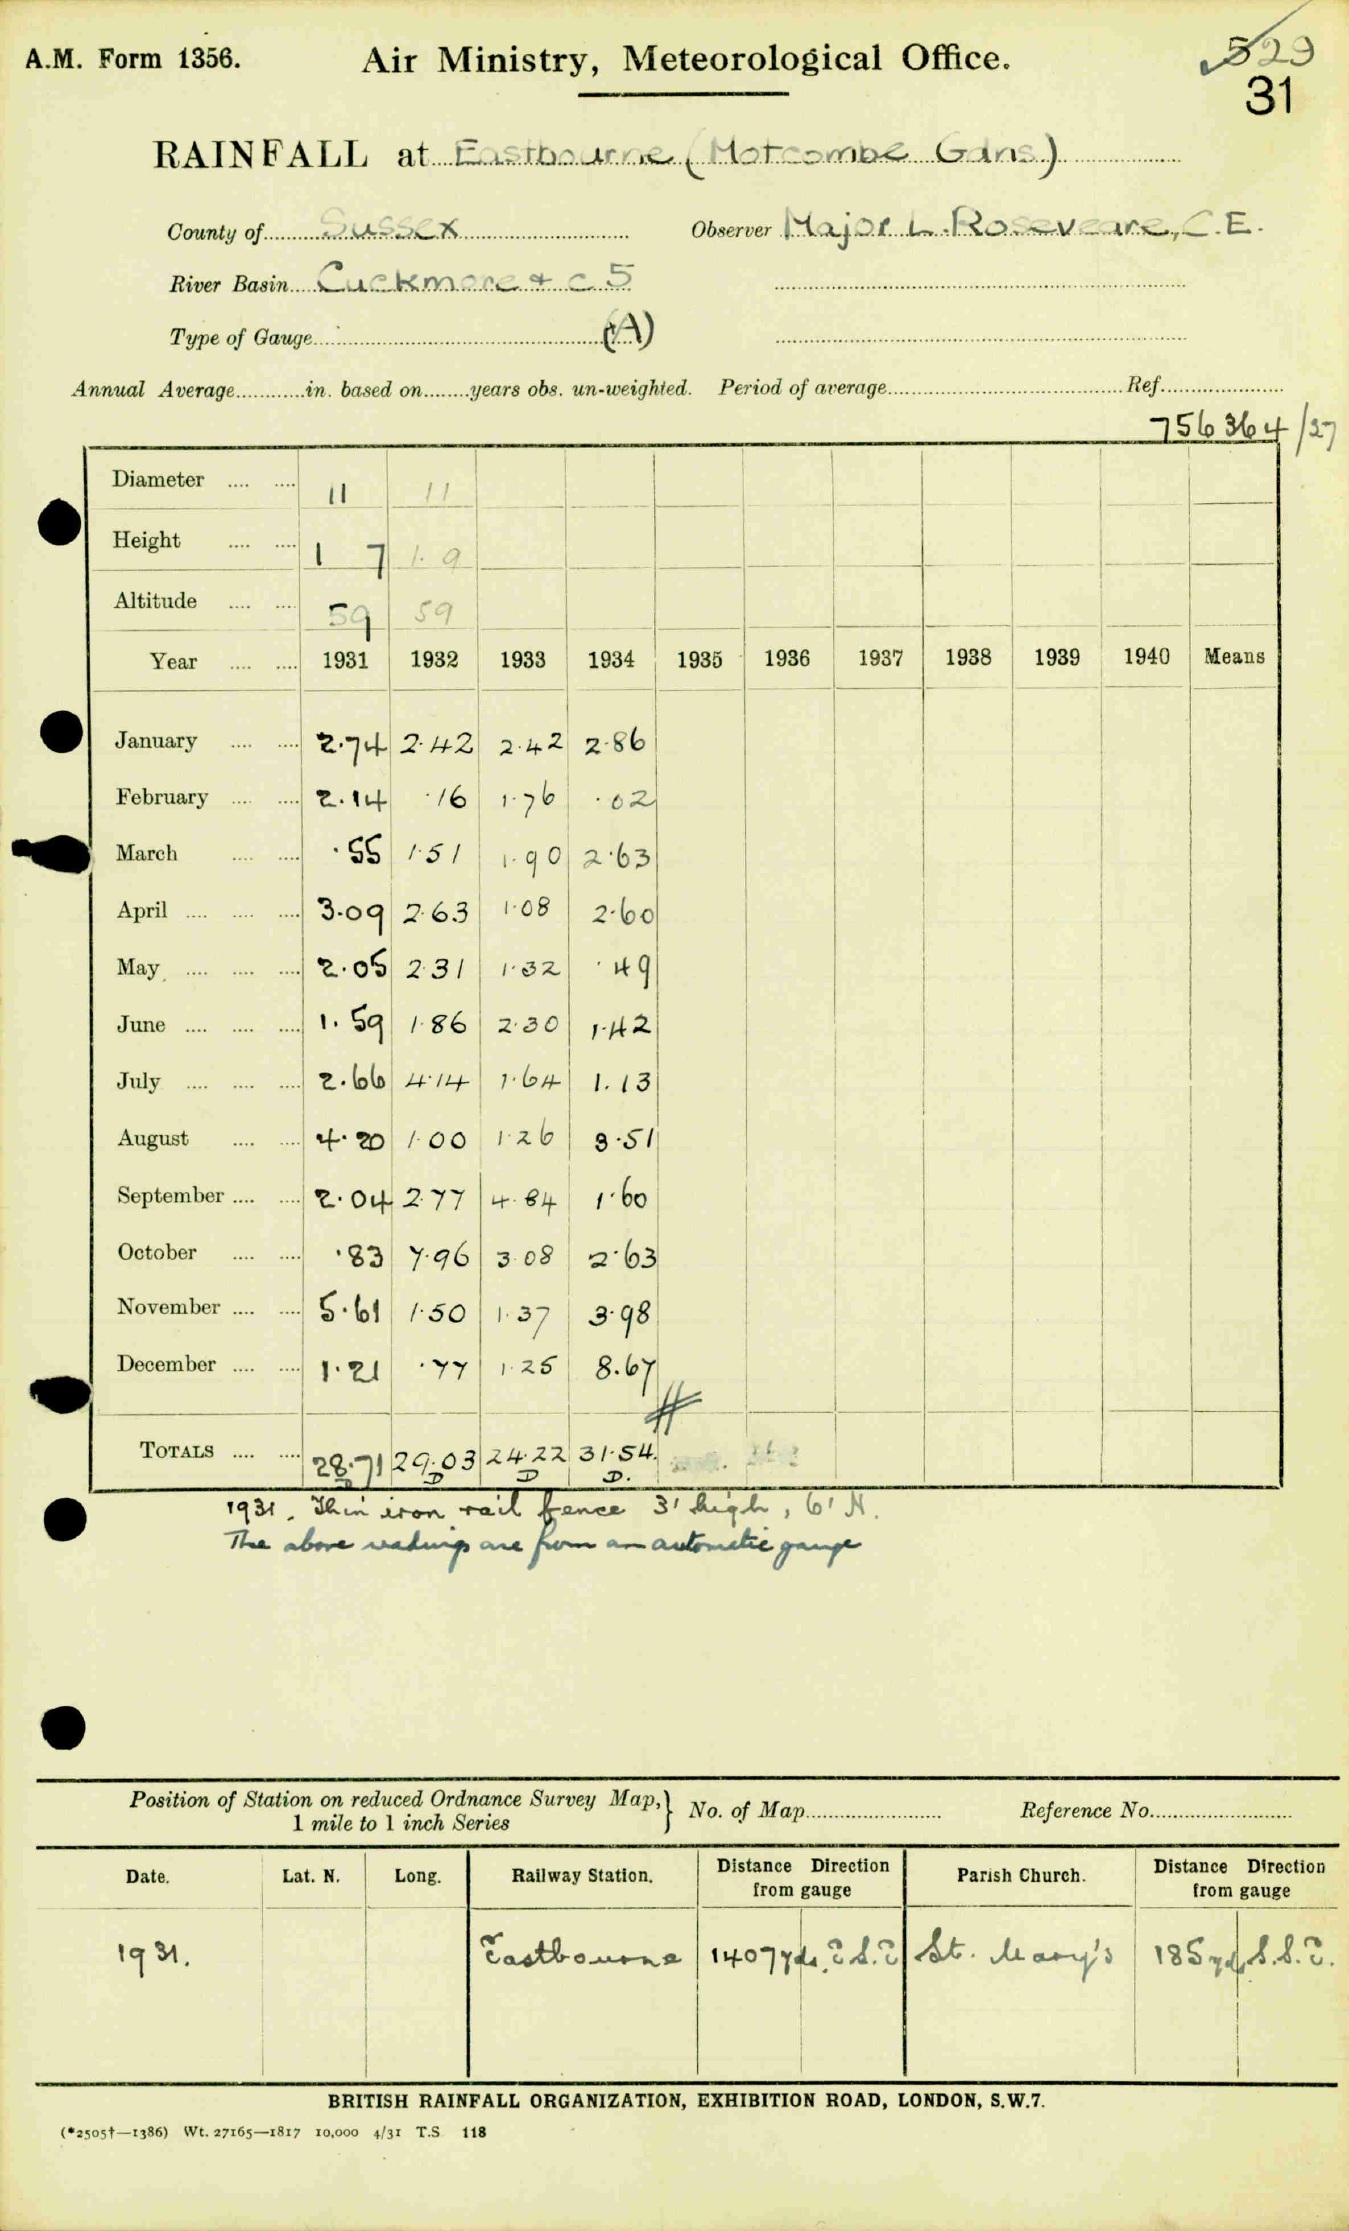 A.M. Form 1356.
Air Ministry, Meteorological Office.
529
31
RAINFALL at Eastbourne (Motcombe Gdns)
County of Sussex Observer Major L. Roseveare, C.E.
River Basin Cuckmere & c 5
Type of Gauge (A)
Annual Average in. based on years obs. un-weighted. Period of average Ref.
756364/27
Diameter 11 11
Height 1 7 1.9
Altitude 59 59
Year 1931 1932 1933 1934 1935 1936 1937 1938 1939 1940 Means
January 2.74 2.42 2.42 2.86
February 2.14 .16 1.76 .02
March .55 1.51 1.90 2.63
April 3.09 2.63 1.08 2.60
May 2.05 2.31 1.32 .49
June 1.59 1.86 2.30 1.42
July 2.66 4.14 1.64 1.13
August 4.20 1.00 1.26 3.51
September 2.04 2.77 4.84 1.60
October .83 7.96 3.08 2.63
November 5.61 1.50 1.37 3.98
December 1.21 .77 1.25 8.67
TOTALS 28.71 29.03 24.22 31.54
D D D D.
1931. Thin iron rail fence 3' high, 6' N.
The above readings are from an automatic gauge
Position of Station on reduced Ordnance Survey Map, 1 mile to 1 inch Series } No. of Map Reference No.
Date. Lat. N. Long. Railway Station. Distance Direction from gauge Parish Church. Distance Direction from gauge
1931. Eastbourne 1407 yds. E.S.E St. Mary's 185 yds S.S.E.
BRITISH RAINFALL ORGANIZATION, EXHIBITION ROAD, LONDON, S.W.7.
(*2505†—1386) Wt. 27165—1817 10,000 4/31 T.S 118